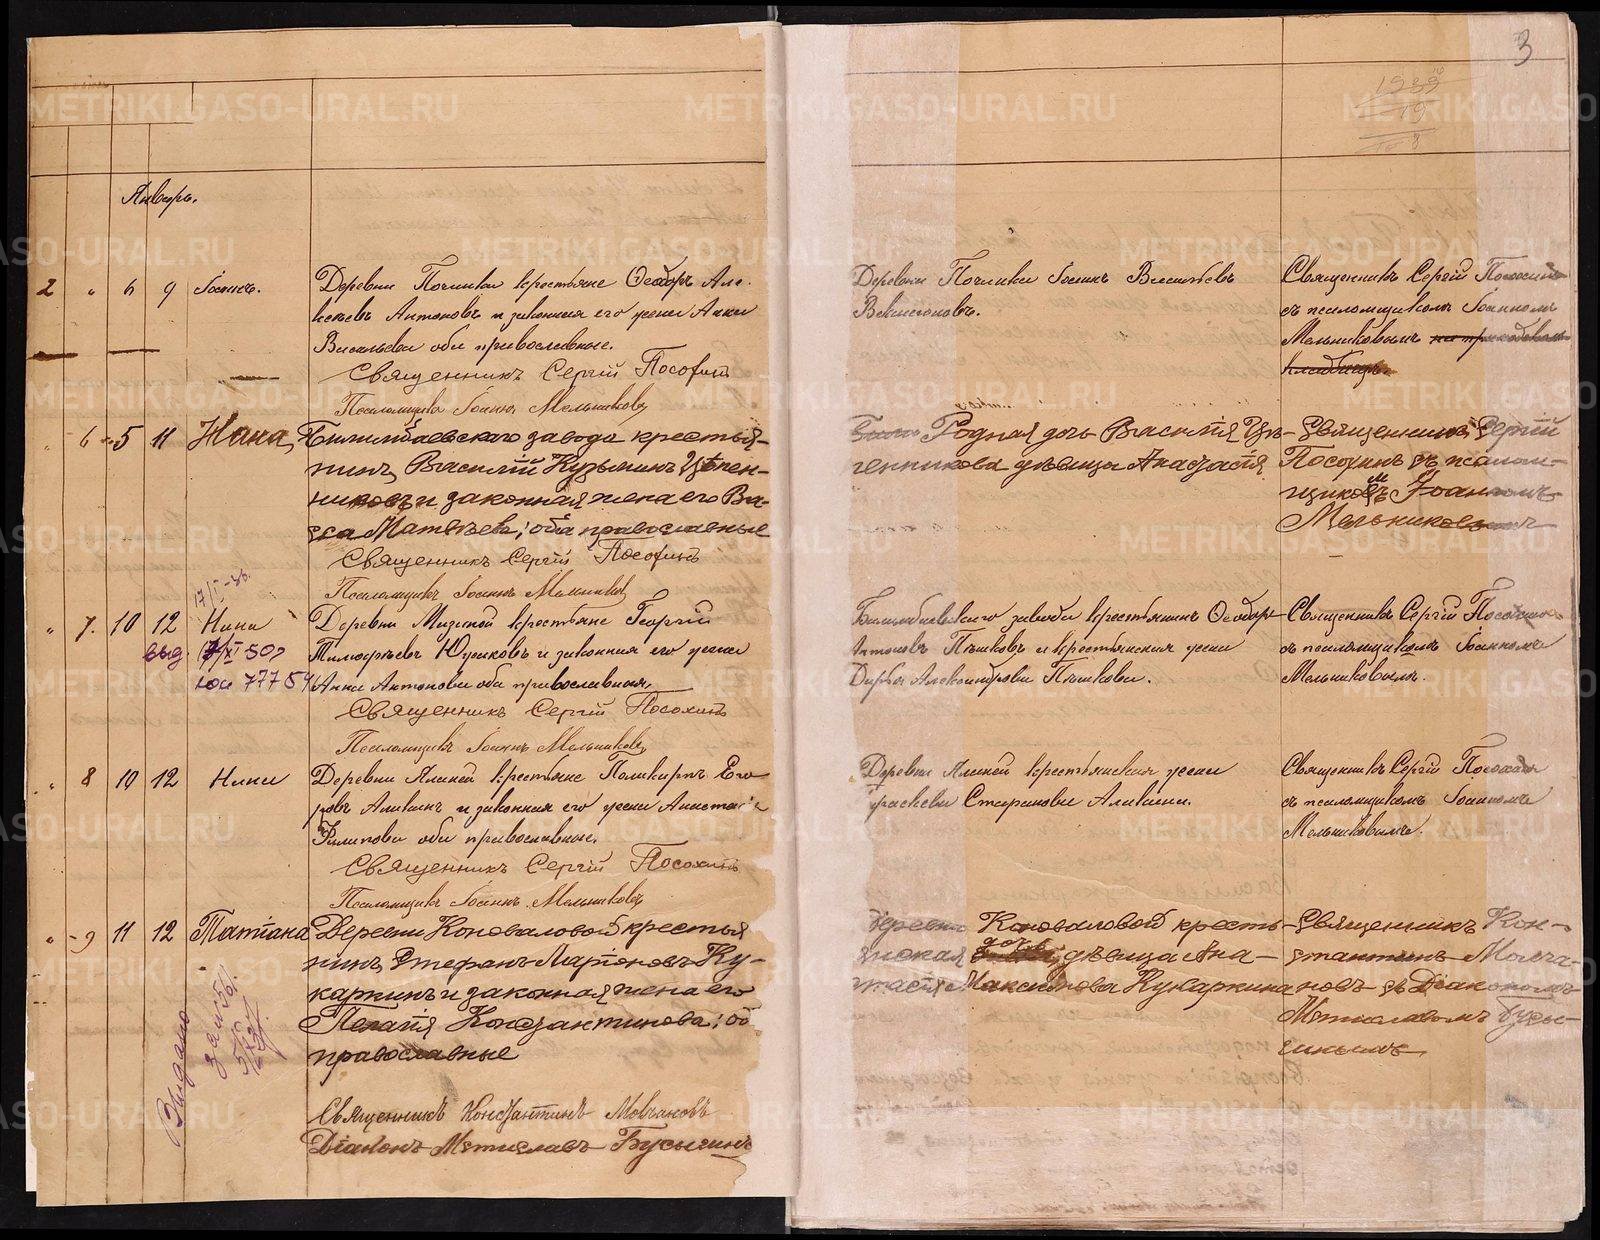 3
1939
19
Январь.
2 " 6 9 Іоаннъ.
Деревни Починки крестьяне Ѳеодоръ Але-
ксѣевъ Антоновъ и законная его жена Анна
Васильева оба православные.
Священникъ Сергій Посохинъ
Псаломщикъ Іоаннъ Мельниковъ
Деревни Починки Іоаннъ Васильевъ
Священникъ Сергій
съ псаломщикомъ Іоанномъ
Мельниковымъ
" 6 5 11
Билимбаевскаго завода крестья-
нинъ Василій Кузьминъ
и законная жена его Ва-
сса Матвѣева; оба православные
Священникъ Сергій Посохинъ
Псаломщикъ Іоаннъ Мельниковъ
Родная дочь Василія
дѣвица Анастасія
Священникъ Сергій
Посохинъ съ псалом-
щикомъ Іоанномъ
Мельниковымъ
17/I-36.
" 7. 10 12 Нина
выд.
777
Деревни крестьяне Георгій
Тимофѣевъ и законная его жена
Анна Антонова оба православные.
Священникъ Сергій Посохинъ
Псаломщикъ Іоаннъ Мельниковъ
Билимбаевскаго завода крестьянинъ Ѳеодоръ
Антоновъ Пѣшковъ и крестьянская жена
Дарья Александрова Пѣшкова.
Священникъ Сергій
съ псаломщикомъ Іоанномъ
Мельниковымъ.
" 8 10 12 Нина
Деревни крестьяне Поликарпъ Его-
ровъ Аликинъ и законная его жена Анастасія
Филипова оба православные.
Священникъ Сергій Посохинъ
Псаломщикъ Іоаннъ Мельниковъ
Деревни крестьянская жена
Стефанова Аликина.
Священникъ Сергій
съ псаломщикомъ Іоанномъ
Мельниковымъ.
" 9 11 12 Татіана
Выдано
Деревни Коноваловой крестья
нинъ Стефанъ Ларіоновъ Ку-
каркинъ и законная жена его
Пелагія Константинова; об
православные
Священникъ Константинъ Молчановъ
Діаконъ Мстиславъ Бусыгинъ
Деревни Коноваловой кресть-
янская дочь дѣвица Ана-
тасія Максимова Кукаркина
Священникъ Кон-
стантинъ Молча-
новъ съ Діакономъ
Мстиславомъ Бусы-
гинымъ